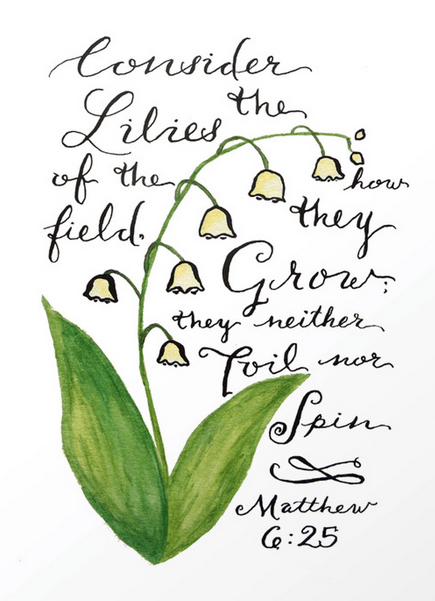 Consider
the
Lilies
of the
how
field.
they
Grow;
they neither
Toil nor
Spin
Matthew
6:25